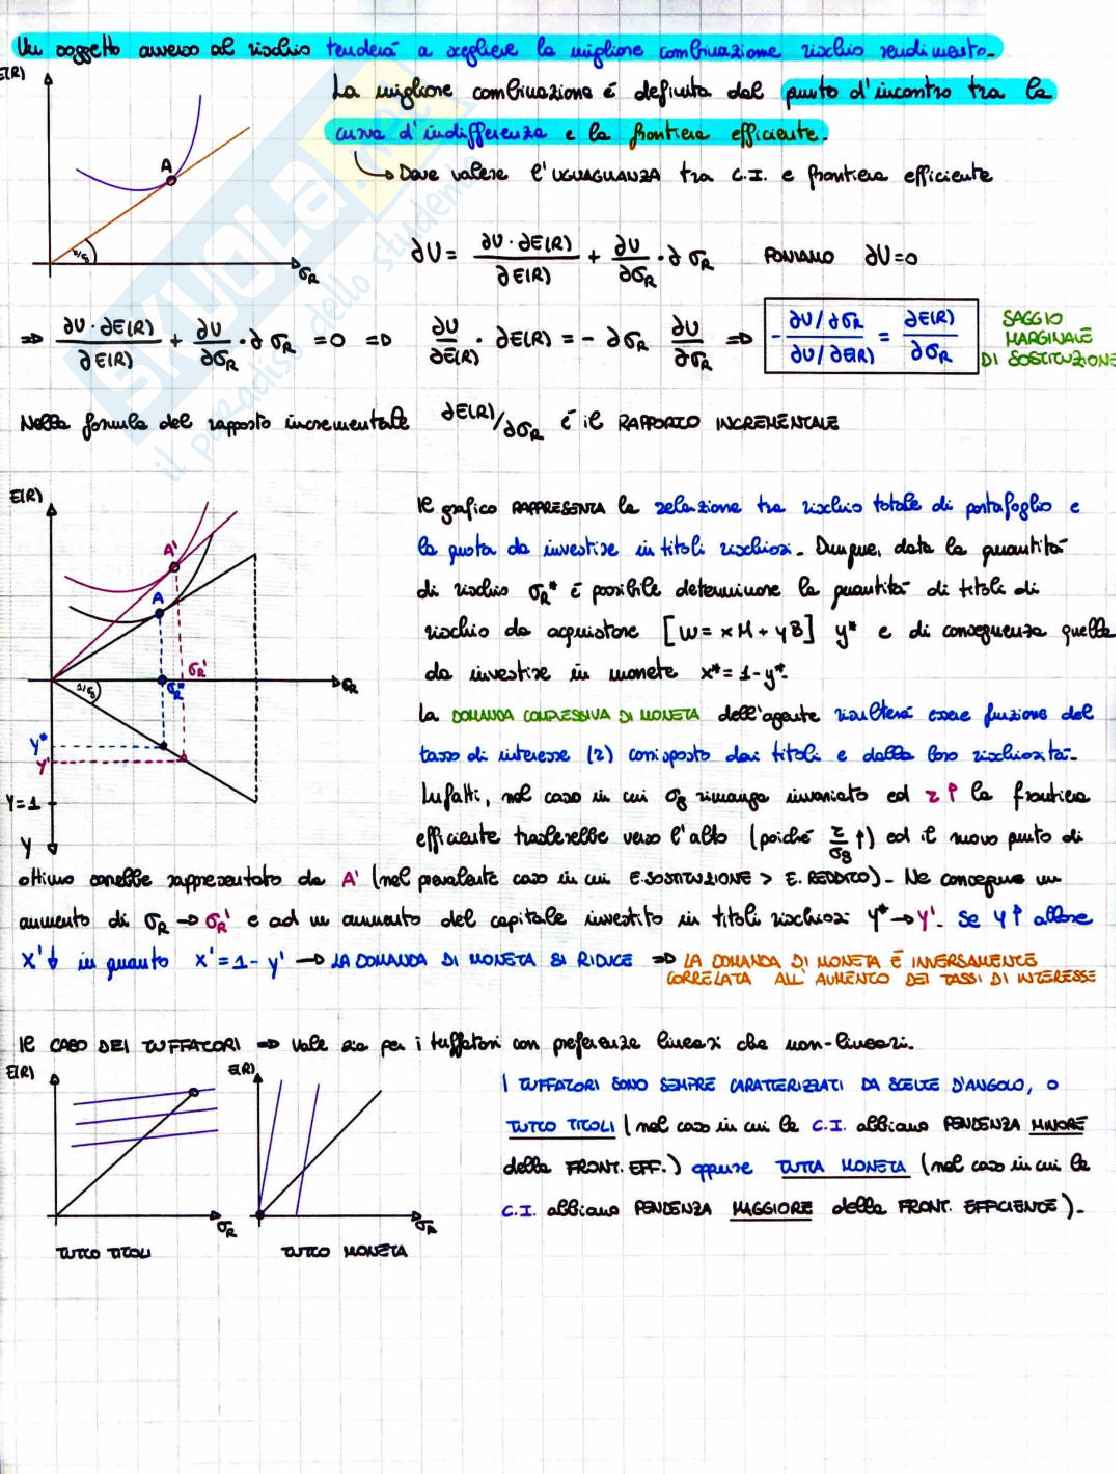 Un soggetto avverso al rischio tenderà a scegliere la migliore combinazione rischio rendimento.
E(R)
La migliore combinazione è definita dal punto d'incontro tra la
curva d'indifferenza e la frontiera efficiente.
A
↳ Dove valere l'UGUAGLIANZA tra C.I. e frontiera efficiente
r/σB
σR
∂U = ∂U · ∂E(R) / ∂E(R) + ∂U/∂σR · ∂σR PONIAMO ∂U = 0
⇒ ∂U · ∂E(R) / ∂E(R) + ∂U/∂σR · ∂σR = 0 ⇒ ∂U/∂E(R) · ∂E(R) = - ∂σR ∂U/∂σR ⇒ - ∂U/∂σR / ∂U/∂E(R) = ∂E(R)/∂σR
SAGGIO
MARGINALE
DI SOSTITUZIONE
Nella formula del rapporto incrementale ∂E(R)/∂σR è il RAPPORTO INCREMENTALE
E(R)
A'
A
σR'
σR*
σR
r/σB
Y*
Y'
Y=1
Y
Il grafico RAPPRESENTA la relazione tra rischio totale di portafoglio e
la quota da investire in titoli rischiosi. Dunque, data la quantità
di rischio σR* è possibile determinare la quantità di titoli di
rischio da acquistare [W = xM + yB] y* e di conseguenza quella
da investire in moneta x* = 1 - y*.
La DOMANDA COMPLESSIVA DI MONETA dell'agente risulterà essere funzione del
tasso di interesse (r) corrisposto dai titoli e dalla loro rischiosità.
Infatti, nel caso in cui σB rimanga invariato ed r ↑ la frontiera
efficiente traslerebbe verso l'alto (poiché r/σB ↑) ed il nuovo punto di
ottimo sarebbe rappresentato da A' (nel prevalente caso in cui E.SOSTITUZIONE > E. REDDITO). Ne consegue un
aumento di σR → σR' e ad un aumento del capitale investito in titoli rischiosi Y* → Y'. Se Y ↑ allora
X' ↓ in quanto x' = 1 - y' → LA DOMANDA DI MONETA SI RIDUCE ⇒ LA DOMANDA DI MONETA È INVERSAMENTE
CORRELATA ALL'AUMENTO DEI TASSI DI INTERESSE
Il CASO DEI TUFFATORI ⇒ Vale sia per i tuffatori con preferenze lineari che non-lineari.
E(R)
σR
TUTTO TITOLI
E(R)
σR
TUTTO MONETA
I TUFFATORI SONO SEMPRE CARATTERIZZATI DA SCELTE D'ANGOLO, O
TUTTO TITOLI (nel caso in cui le C.I. abbiano PENDENZA MINORE
della FRONT. EFF.) oppure TUTTA MONETA (nel caso in cui le
C.I. abbiano PENDENZA MAGGIORE della FRONT. EFFICIENTE).
SKUOLA.net
il paradiso dello studente